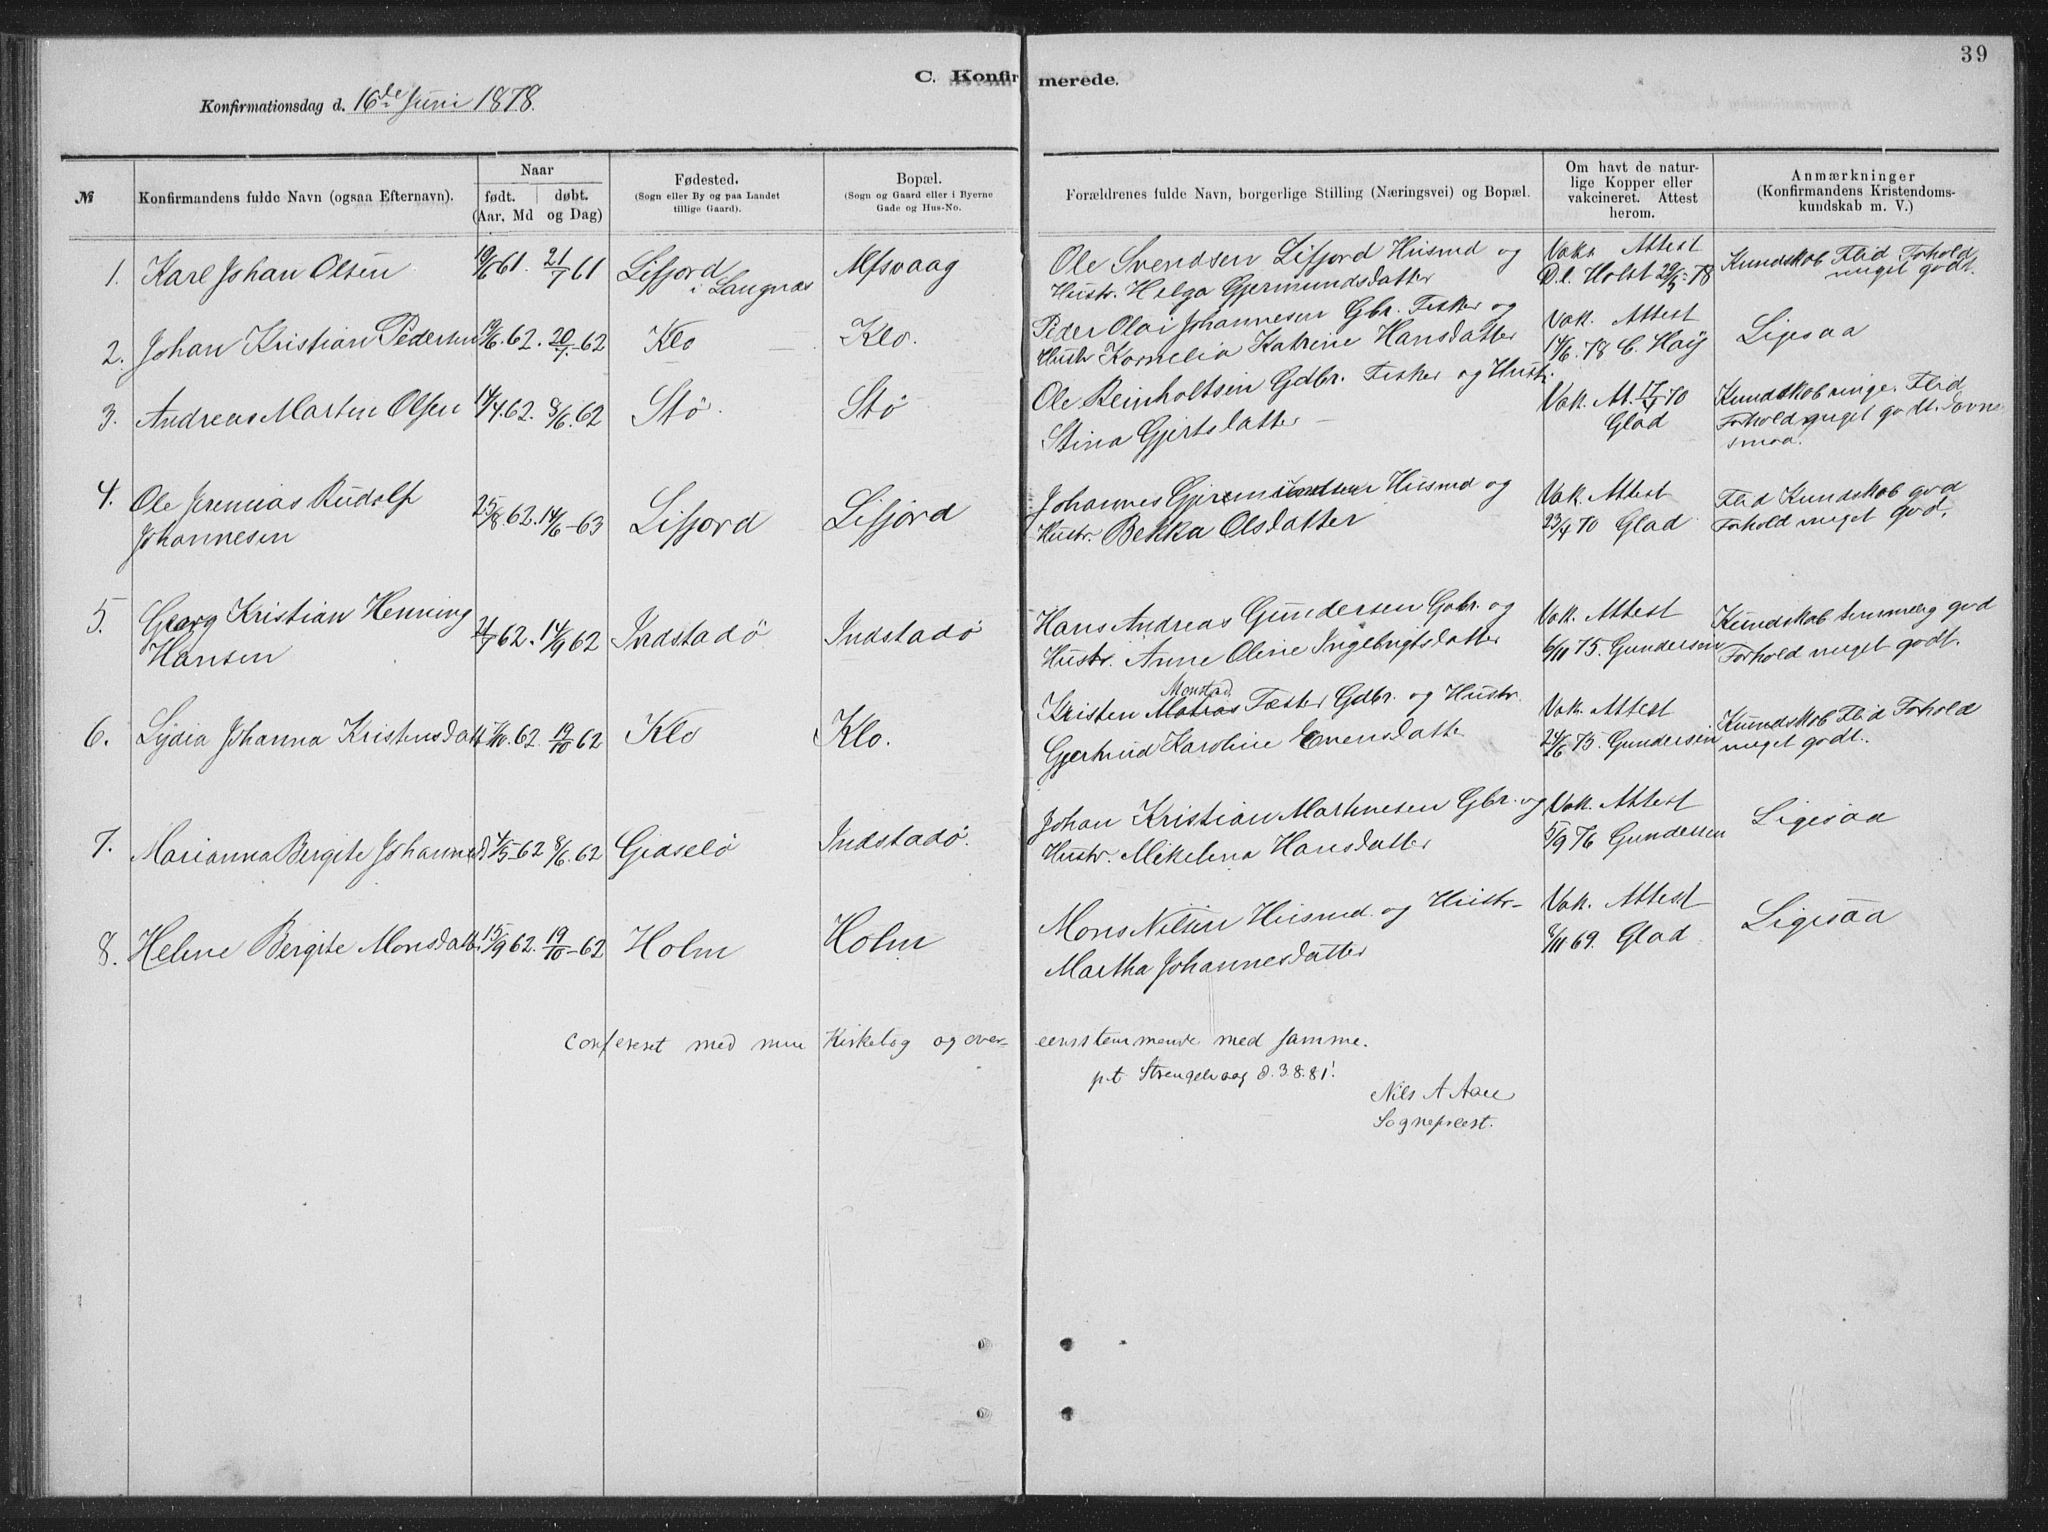 39
C. Konfirmerede.
Konfirmationsdag d. 16de Juni 1878.
№
Konfirmandens fulde Navn (ogsaa Efternavn).
Naar
født. døbt.
(Aar, Md og Dag)
Fødested.
(Sogn eller By og paa Landet
tillige Gaard).
Bopæl.
(Sogn og Gaard eller i Byerne
Gade og Hus-No.
Forældrenes fulde Navn, borgerlige Stilling (Næringsvei) og Bopæl.
Om havt de natur-
lige Kopper eller
vakcineret. Attest
herom.
Anmærkninger
(Konfirmandens Kristendoms-
kundskab m. V.)
1. Karl Johan Olsen 19/6 61. 21/7 61 Lifjord Alfsvaag Ole Svendsen Lifjord Husmd og Vakc. Attest Kundskob Flid Forhold
i Langnæs Hustr. Helga Gjermundsdatter D.l. Holst 29/5-78 meget godt.
2. Johan Kristian Pedersen 62. 20/7-62 Klo Klo. Peder Olai Johannesen Gbr. Fisker og Vak. Attest Ligesaa
Hustr Kornelia Katrine Hansdatter 14/6.78 C. Høy
3. Andreas Martin Olsen 14/4.62. 8/6.62 Stø Stø Ole Reinholtsen Gdbr. Fisker og Hustr. Vak. At. 17/9 70 Kundskob ringe. Flid
Stina Gjertsdatter Glad Forhold meget godt. Evne
smaa.
4. Ole Jeremias Rudolf 25/8 62. 14/6-63 Lifjord Lifjord Johannes Gjermundsen Husmd og Vak. Attest Flid Kundskob god
Johannesen Hustr. Bekka Olsdatter 23/4 70 Glad Forhold meget god.
5. Georg Kristian Henning 62. 14/9 62 Indstadø Indstadø Hans Andreas Gundersen Gbr. og Vak. Attest Kundskob temmelig god
Hansen Hustr. Anne Oline Ingebrigtsdatter 6/11 75. Gundersen Forhold meget godt.
6. Lydia Johanna Kristensdatt 62. 19/10 62 Klo Klo. Kristen Monstad Fæster Gdbr. og Hustr. Vak. Attest Kundskob Flid Forhold
Gjertrud Karoline Evensdatte 24/6 75. Gundersen meget godt.
7. Marianna Bergite Johannesd 62 8/6.62 Gidselø Indstadø. Johan Kristian Martinesen Gbr. og Vak. Attest Ligesaa
Hustr. Mikelina Hansdatter 5/9 76 Gundersen
8. Heline Bergite Monsdatte 15/9 62. 19/10-62 Holm Holm Mons Nilsen Husmd. og Hustr- Vak. Attest Ligesaa
Martha Johannesdatter 8/11 69. Glad
Confereret med min Kirkebog og over- eensstemmende med samme.
p.t. Strengelvaag d. 3.8.81!
Nils A Aall
Sognepræst.